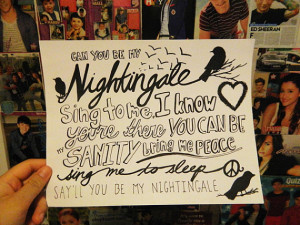 CAN YOU BE MY
Nightingale
Sing to me, I know
You're there YOU CAN BE
MY SANITY bring me PEACE
sing me to sleep
SAY'LL YOU BE MY NIGHTINGALE
ED SHEERAN
ED SHEERAN